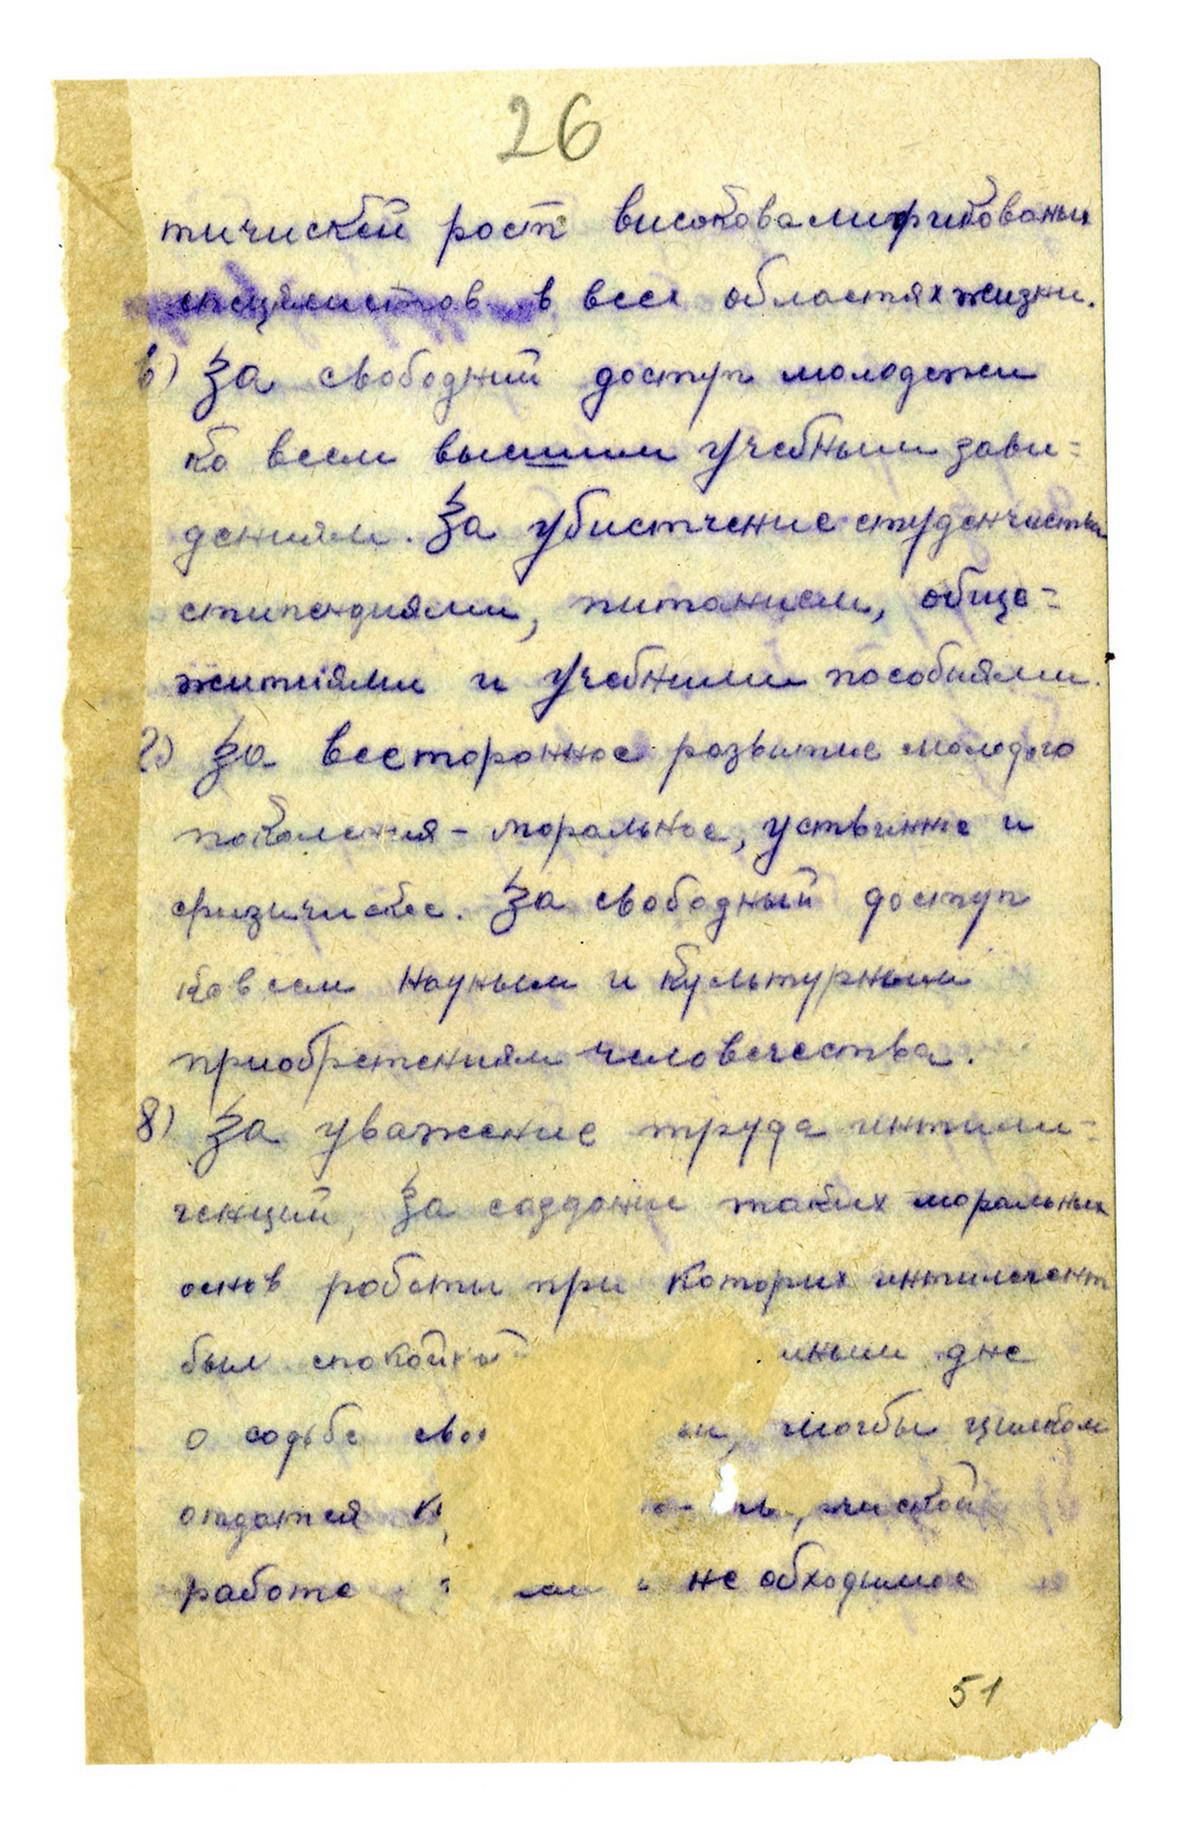 26
тичиской рост високовалификованых
спецялистов в всех областях жизни.
в) За свободний доступ молодежи
ко всем высшим учебным заве=
дениям. За убистчение студенчиства
стипендиями, питанием, обще=
житиями и учебними пособиями.
г) За всестороннее развитие молодого
поколения - моральное, уствинне и
физичиское. За свободный доступ
ковсем научным и культурным
приобретениям человечества.
8) За уважение труда интили=
генций, За создание таких моральных
основ роботы при которих интилегент
был спокойный дне
о содьбе могбы циликом
отдатся
работе не обходимое
51